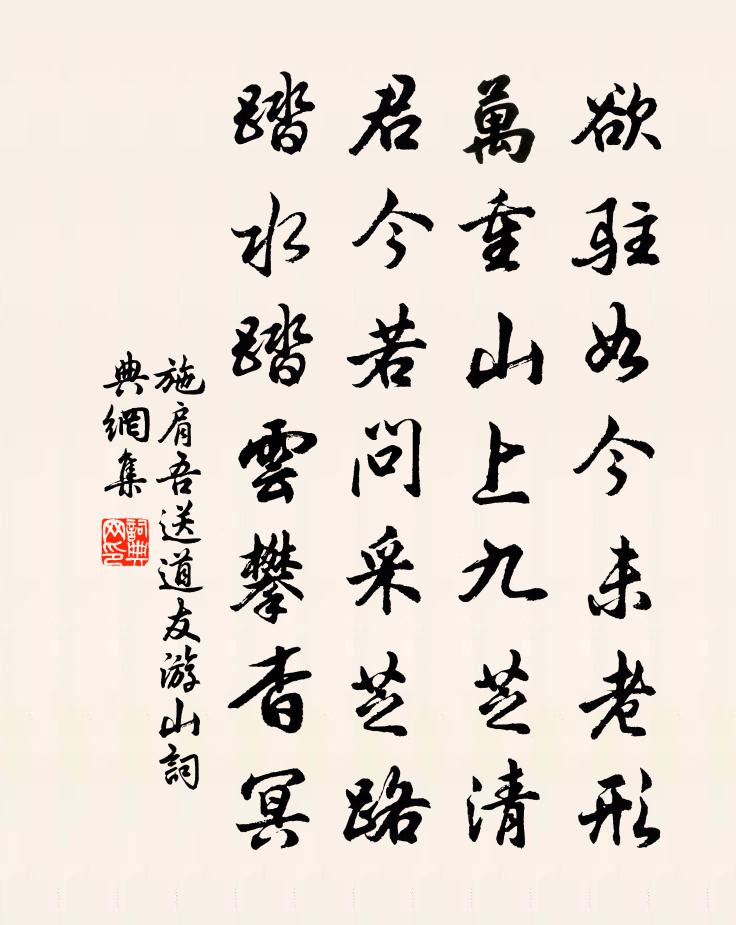 欲駐如今未老形
萬重山上九芝清
君今若問采芝路
踏水踏雲攀杳冥
施肩吾送道友游山詞
典網集
詞典
网印